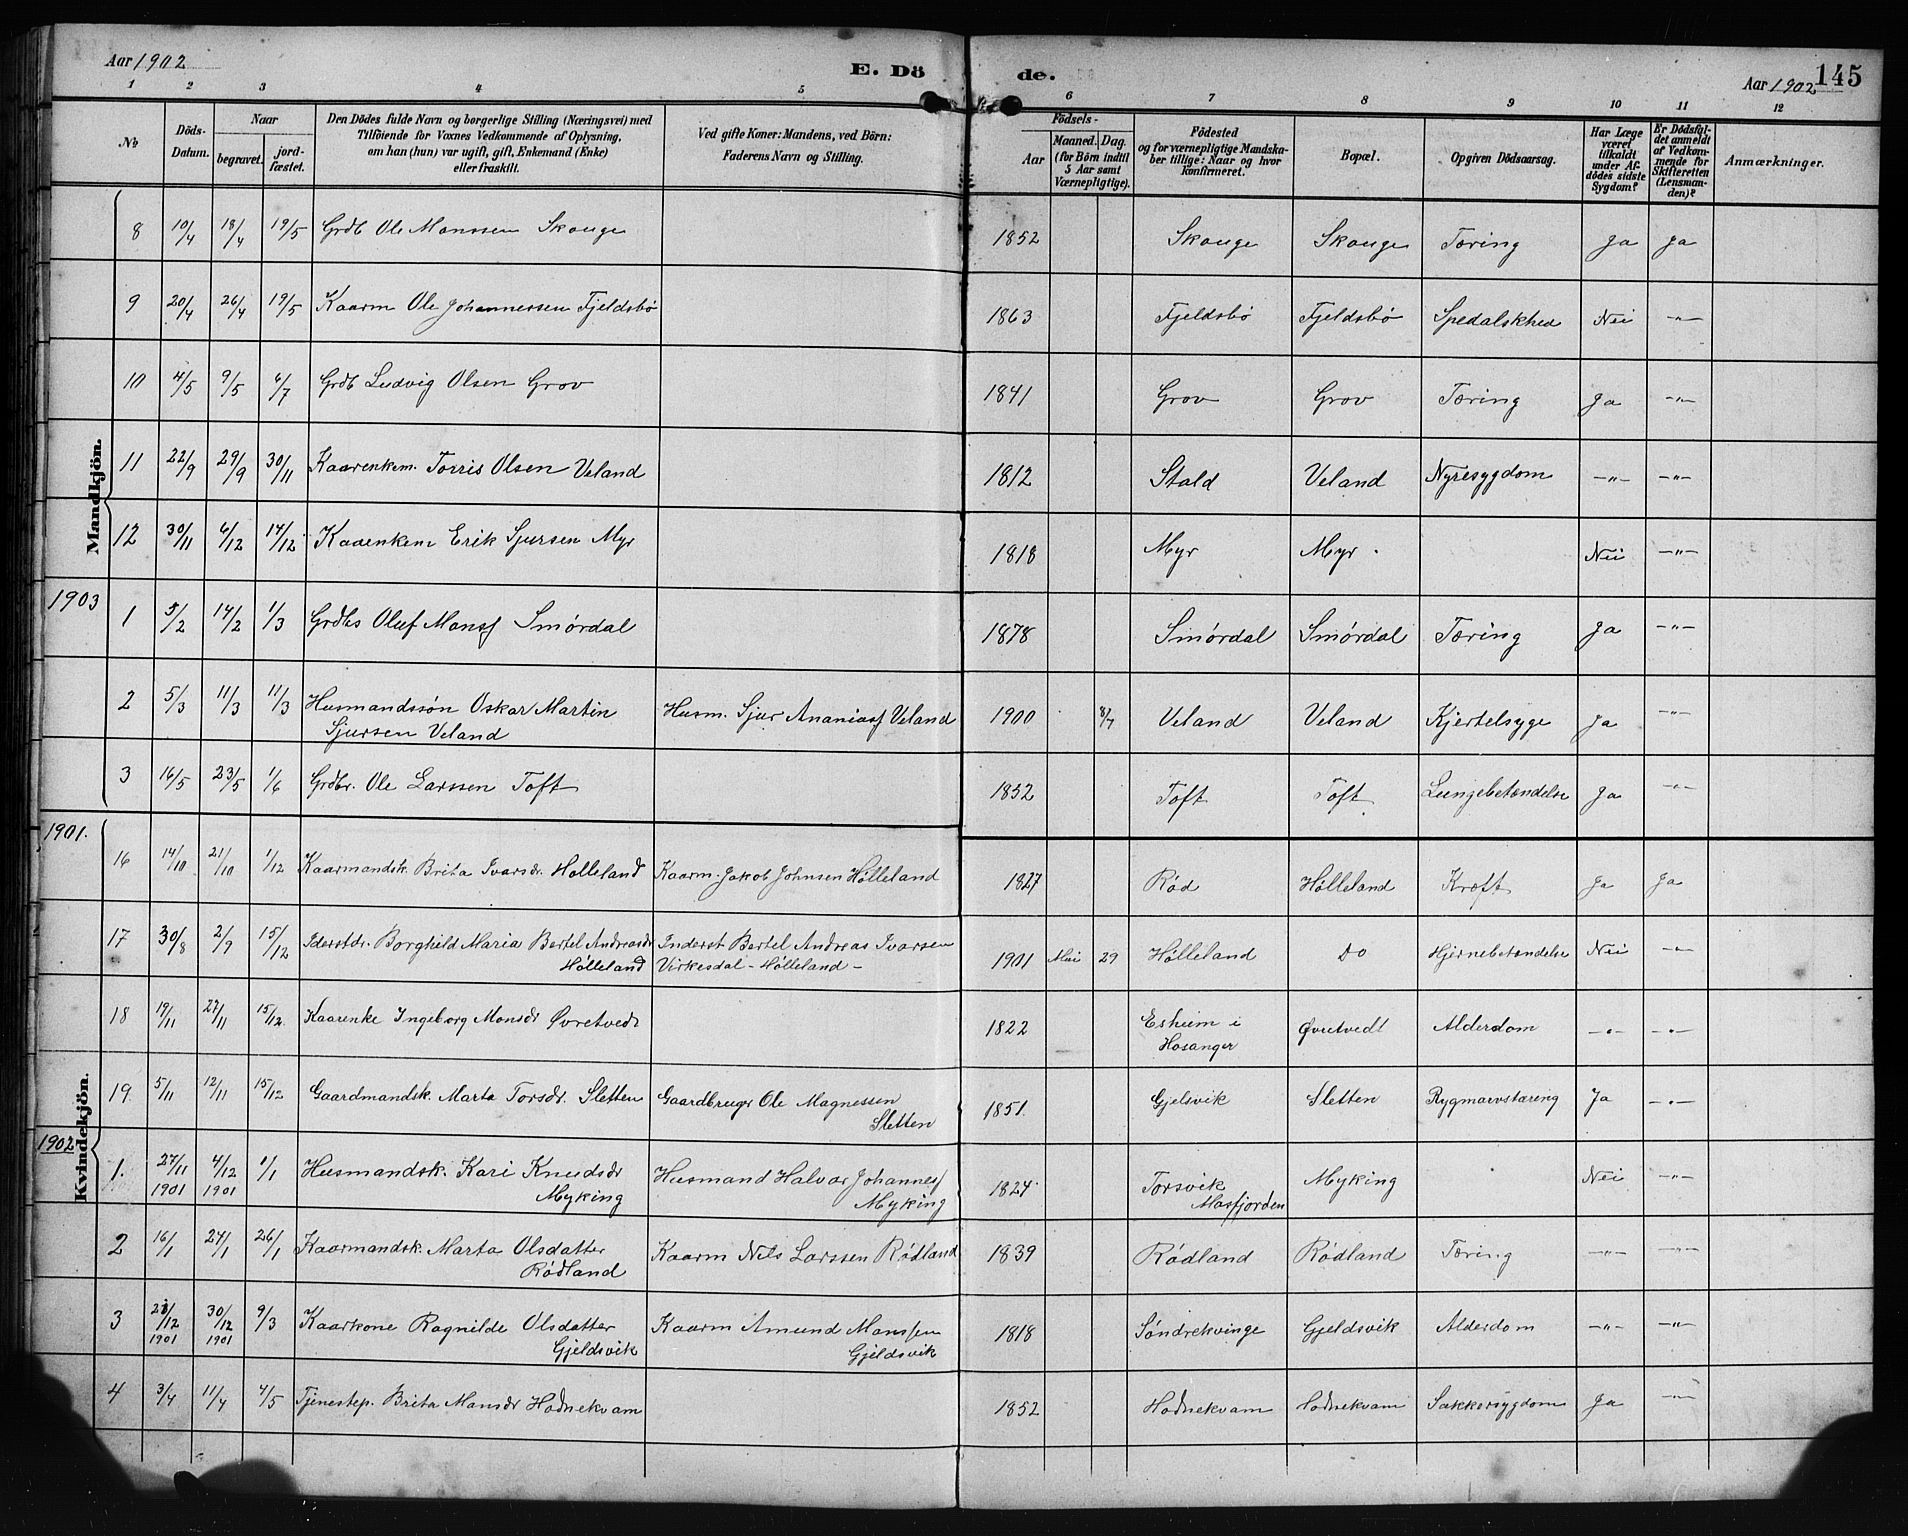 Aar 1902
E. Dö
de.
Aar 1902
145
1 2 3 4 5 6 7 8 9 10 11 12
No
Döds-Datum.
Naar
begravet.
jord-fæstet.
Den Dödes fulde Navn og borgerlige Stilling (Næringsvei) med
Tilföiende for Voxnes Vedkommende af Oplysning,
om han (hun) var ugift, gift, Enkemand (Enke)
eller fraskilt.
Ved gifte Koner: Mandens, ved Börn:
Faderens Navn og Stilling.
Födsels-
Aar
Maaned. Dag.
(for Börn indtil
5 Aar samt
Værnepligtige).
Födested
og for værnepligtige Mandska-
ber tillige: Naar og hvor
konfirmeret.
Bopæl.
Opgiven Dödsaarsag.
Har Læge
været
tilkaldt
under Af-
dödes sidste
Sygdom?
Er Dödsfal-
det anmeldt
af Vedkom-
mende for
Skifteretten
(Lensman-
den)?
Anmærkninger.
Mandkjön.
8 10/4 18/4 19/5 Grdb Ole Monssen Skouge 1852 Skouge Skouge Tæring Ja Ja
9 20/4 26/4 19/5 Kaarm Ole Johannessen Fjeldsbø 1863 Fjeldsbø Fjeldsbø Spedalskhed Nei -"-
10 4/5 9/5 6/7 Grdb Ludvig Olsen Grov 1841 Grov Grov Tæring Ja -"-
11 22/9 29/9 30/11 Kaarenkem. Torris Olsen Veland 1812 Stald Veland Nyresygdom -"- -"-
12 30/11 6/12 14/12 Kaarenkem Erik Sjursen Myr 1818 Myr Myr. Nei -"-
1903
1 5/2 14/2 1/3 Grdbs Oluf Monsf Smørdal 1878 Smørdal Smørdal Tæring Ja -"-
2 5/3 11/3 11/3 Husmandssøn Oskar Martin Husm. Sjur Ananiasf Veland 1900 8/7 Veland Veland Kjertelsyge Ja -"-
Sjursen Veland
3 16/5 23/5 1/6 Grdbr. Ole Larssen Toft 1852 Toft Toft Lungebetændelse Ja -"-
1901.
Kvindekjön.
16 14/10 21/10 1/12 Kaarmandsk. Brita Ivarsdr. Hølleland Kaarm. Jakob Johnsen Hølleland 1827 Rød Hølleland Kræft Ja Ja
17 30/8 2/9 15/12 Iderstdr. Borghild Maria Bertel Andreasdr Inderst Bertel Andreas Ivarsen 1901 Mai 29 Hølleland Do Hjernebetændelse Nei -"-
Hølleland Virkesdal - Hølleland -
18 19/11 27/11 15/12 Kaarenke Ingeborg Monsdr Øvretvedt 1822 Esheim i Øvretvedt Alderdom -"- -"-
Hosanger
19 5/11 12/11 15/12 Gaardmandsk. Marta Torsdr. Sletten Gaardbruger Ole Magnessen 1851. Gjelsvik Sletten Rygmarvstæring Ja -"-
Sletten
1902
1. 27/11 4/12 1/1 Husmandsk. Kari Knudsdr Husmand Halvor Johannesf 1824 Torsvik Myking Nei -"-
1901 1901 Myking Myking Masfjorden
2 16/1 24/1 26/1 Kaarmandsk. Marta Olsdatter Kaarm Nils Larssen Rødland 1839 Rødland Rødland Tæring -"- -"-
Rødland
3 /12 30/12 9/3 Kaarkone Ragnilde Olsdatter Kaarm Amund Monssen 1818 Søndrekvinge Gjeldsvik Alderdom -"- -"-
1901 1901 Gjeldsvik Gjeldsvik
4 3/4 11/4 4/5 Tjenestep. Brita Monsdr Hodnekvam 1852 Hodnekvam Hodnekvam Sukkersygdom Ja -"-